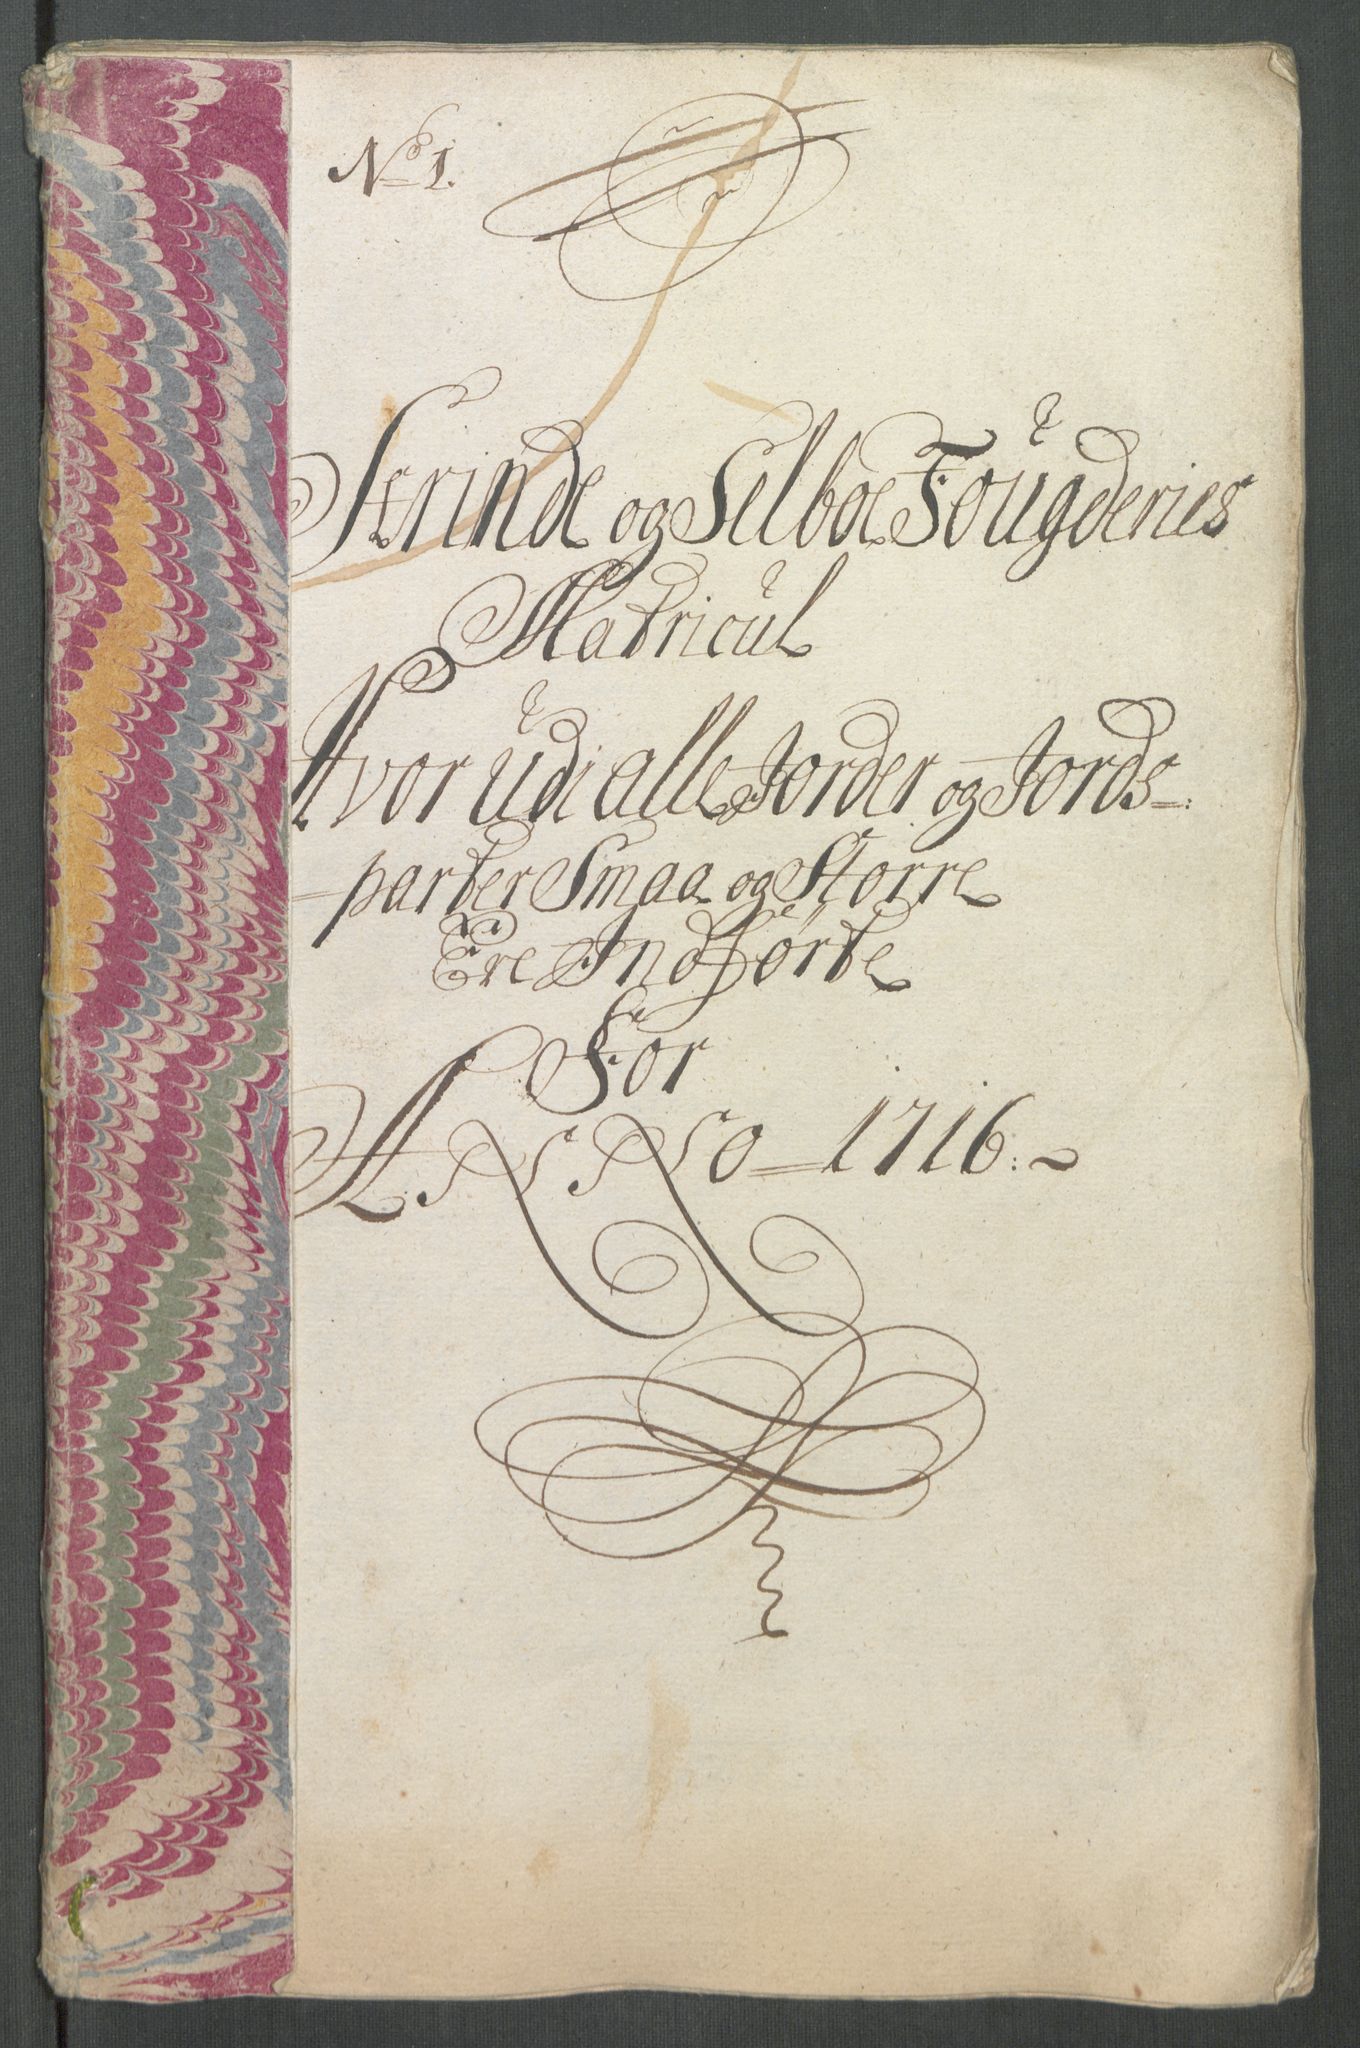 No 1.
Strinde og Selboe Fougderies
Matricul
Hvor udi alle Jorder og Jords=
parter Smaa og Större
Ere Indförte
For
ANNO = 1716. ~